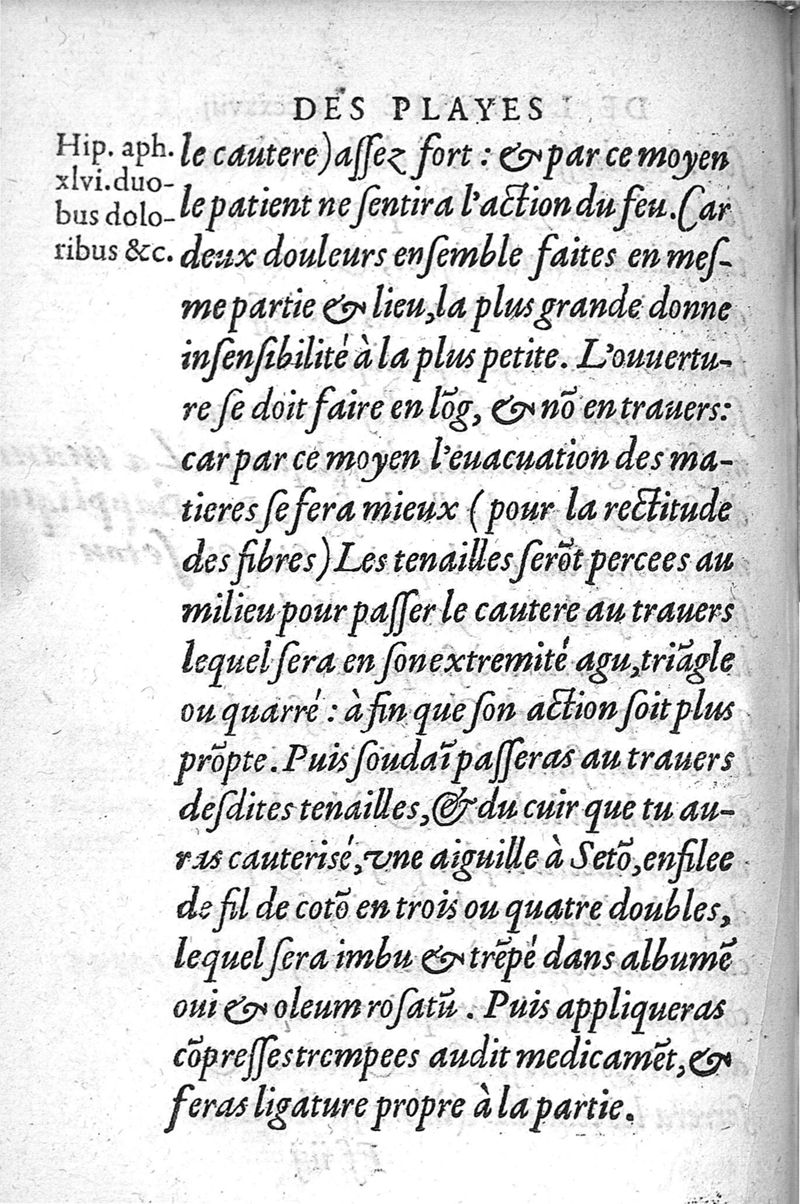 DES PLAYES
Hip. aph.
xlvi. duo-
bus dolo-
ribus &c.
le cautere) aſſez fort : & par ce moyen
le patient ne ſentira l'action du feu. Car
deux douleurs enſemble faites en meſ-
me partie & lieu, la plus grande donne
inſenſibilité à la plus petite. L'ouuertu-
re ſe doit faire en lõg, & nõ en trauers:
car par ce moyen l'euacuation des ma-
tieres ſe fera mieux (pour la rectitude
des fibres) Les tenailles ſerõt percees au
milieu pour paſſer le cautere au trauers
lequel ſera en ſon extremité agu, triãgle
ou quarré : à fin que ſon action ſoit plus
prõpte. Puis ſoudaĩ paſſeras au trauers
deſdites tenailles, & du cuir que tu au-
ras cauteriſé, vne aiguille à Setõ, enfilee
de fil de cotõ en trois ou quatre doubles,
lequel ſera imbu & trẽpé dans albumẽ
oui & oleum roſatũ. Puis appliqueras
cõpreſſes trempees audit medicamẽt, &
feras ligature propre à la partie.